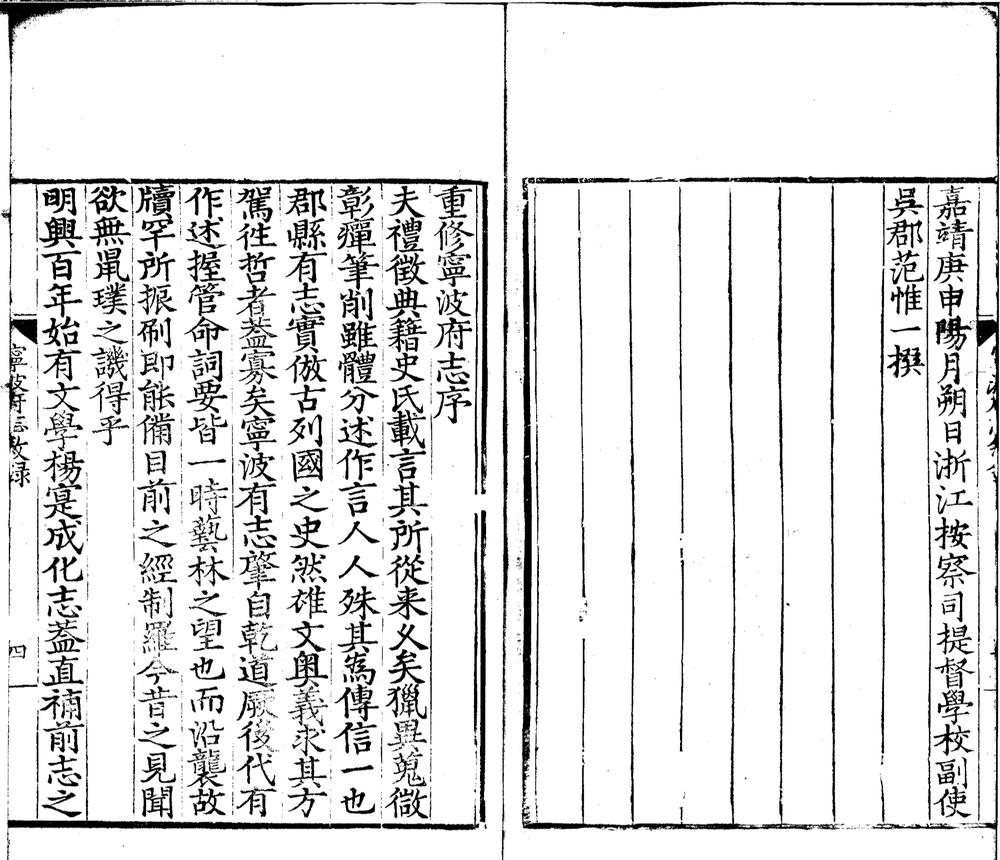 嘉靖庚申陽月朔日浙江按察司提督學校副使
吳郡范惟一撰
重修寧波府志序
夫禮徵典籍史氏載言其所從来乆矣獵異蒐微
彰癉筆削雖體分述作言人人殊其為傳信一也
郡縣有志實倣古列國之史然雄文奥義求其方
駕徃哲者葢寡矣寧波有志肇自乾道厥後代有
作述握管命詞要皆一時藝林之望也而沿襲故
牘罕所振刷即能備目前之經制羅今昔之見聞
欲無鼠璞之譏得乎
明興百年始有文學楊寔成化志葢直補前志之
寧波府志敘録
四